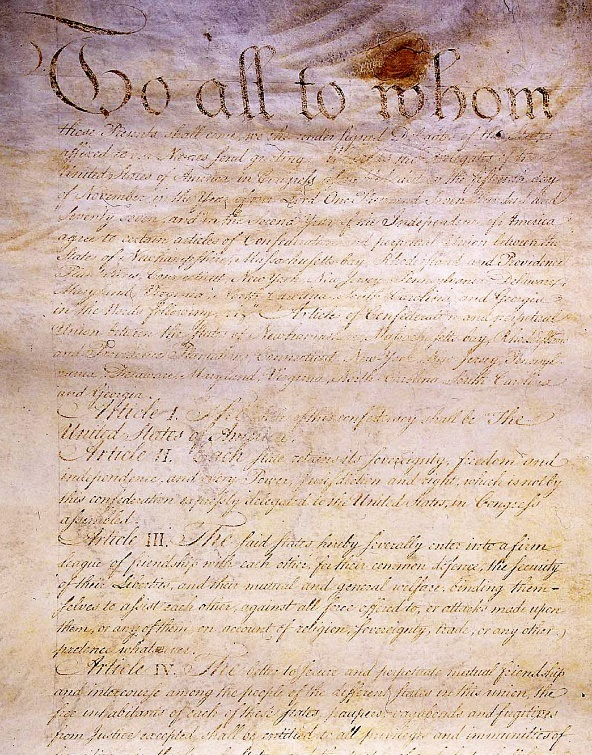 To all to whom
these Presents shall come, we the under signed Delegates of the States
affixed to our Names send greeting. Whereas the Delegates of the
United States of America in Congress assembled did on the fifteenth day
of November in the Year of our Lord One Thousand Seven Hundred and
Seventy seven, and in the Second Year of the Independence of America
agree to certain articles of Confederation and perpetual Union between the
States of Newhampshire, Massachusetts-bay, Rhodeisland and Providence
Plantations, Connecticut, New York, New Jersey, Pennsylvania, Delaware,
Maryland, Virginia, North-Carolina, South-Carolina, and Georgia
in the Words following, viz. Articles of Confederation and perpetual
Union between the States of Newhampshire, Massachusetts-bay, Rhodeisland
and Providence Plantations, Connecticut, New-York, New-Jersey, Pennsyl-
vania, Delaware, Maryland, Virginia, North-Carolina, South-Carolina
and Georgia.
Article I. The Stile of this confederacy shall be "The
United States of America."
Article II. Each state retains its sovereignty, freedom and
independence, and every Power, Jurisdiction and right, which is not by
this confederation expressly delegated to the United States, in Congress
assembled.
Article III. The said states hereby severally enter into a firm
league of friendship with each other, for their common defence, the security
of their Liberties, and their mutual and general welfare, binding them-
selves to assist each other, against all force offered to, or attacks made upon
them, or any of them, on account of religion, sovereignty, trade, or any other
pretence whatever.
Article IV. The better to secure and perpetuate mutual friendship
and intercourse among the people of the different states in this union, the
free inhabitants of each of these states, paupers, vagabonds and fugitives
from Justice excepted, shall be entitled to all privileges and immunities of